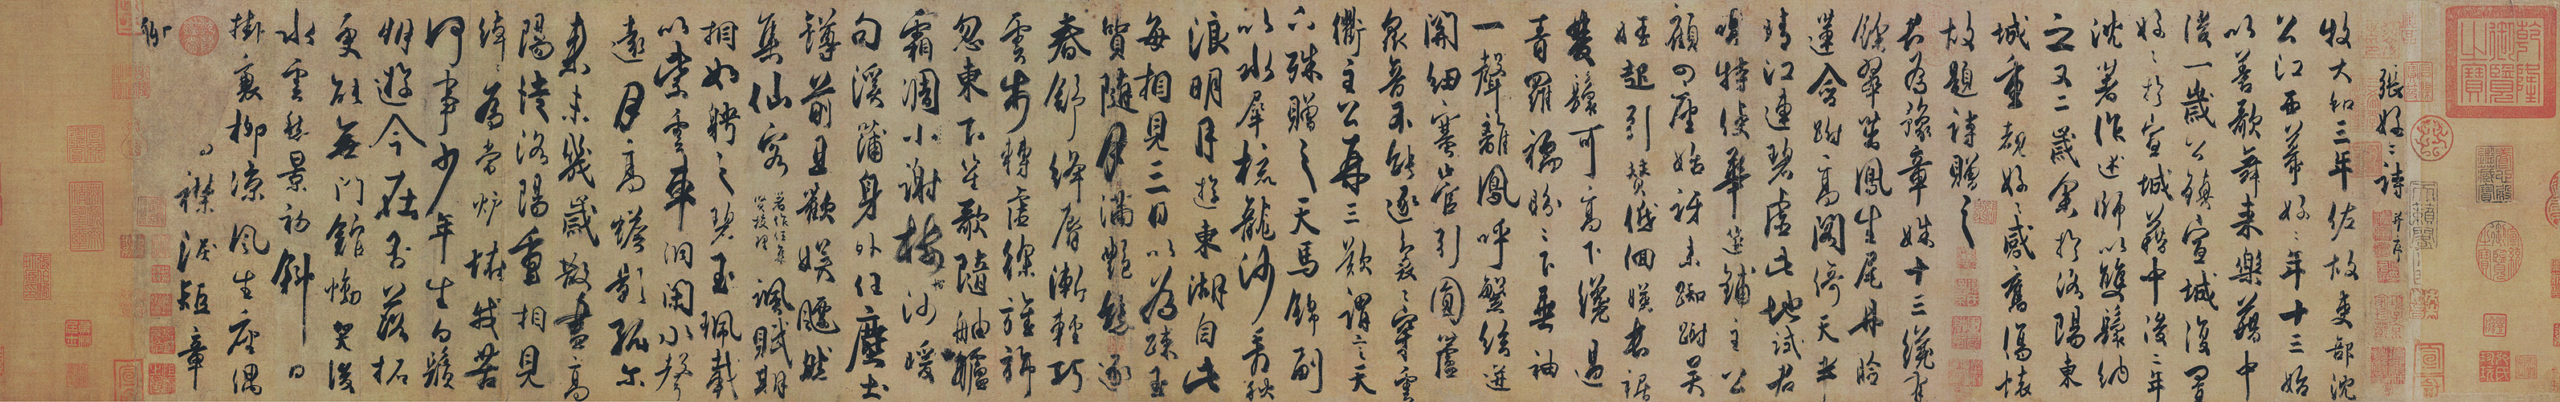 乾隆御覽之寶
張好〻詩并序
牧大和三年佐故吏部沈
公江西幕好〻年十三始
以善歌舞来樂籍中
後一歲公鎮宣城復置
好〻於宣城籍中後二年
沈著作述師以雙鬟納
之又二歲余於洛陽東
城重覩好〻感舊傷懷
故題詩贈之
君為豫章姝十三纔有
餘翠茁鳳生尾丹臉
蓮含跗高閣倚天半
晴江連碧虛此地試君
唱特使華筵鋪主公
顧四座始訝来踟躕吴
娃起引贊低佪暎長裾
雙鬟可高下纔過
青羅襦盼〻下垂袖
一聲離鳳呼繁弦迸
關細塞管引圓蘆
衆音不能逐裊〻穿雲
衢主公再三歎謂言天
下殊贈之天馬錦副
以水犀梳龍沙看秋
浪明月遊東湖自此
每相見三日以為踈玉
質隨月滿艷態逐
春舒絳脣漸輕巧
雲步轉虛徐旌旆
忽東下笙歌隨舳艫
霜凋小謝樹沙暖
句溪蒲身外任塵土
罇前且歡娛飄然
集仙客著作任集賢校理諷賦期
相如聘之碧玉珮載
以紫雲車洞閉水聲
遠月高蟾影孤尔
来未幾歲散盡高
陽徒洛陽重相見
綽〻為當爐怪我苦
何事少年生白鬚
朋遊今在否落拓
更能無門館慟哭後
水雲愁景初斜日
掛衰柳涼風生座隅
灑襟淚短章
聊